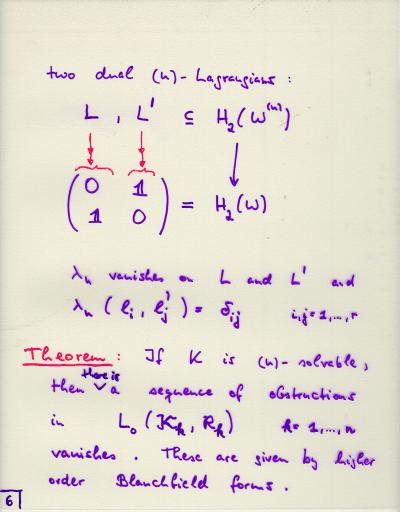 two dual (n)-Lagrangians :
L , L' ⊆ H₂(W⁽ⁿ⁾)
( 0 1
1 0 ) = H₂(W)
λₙ vanishes on L and L' and
λₙ ( lᵢ , lⱼ' ) = δᵢⱼ i,j=1,...,r
Theorem: If K is (n)-solvable,
then there is a sequence of obstructions
in L₀ (𝒦ₖ, Rₖ) k=1,...,n
vanishes. These are given by higher
order Blanchfield forms.
6